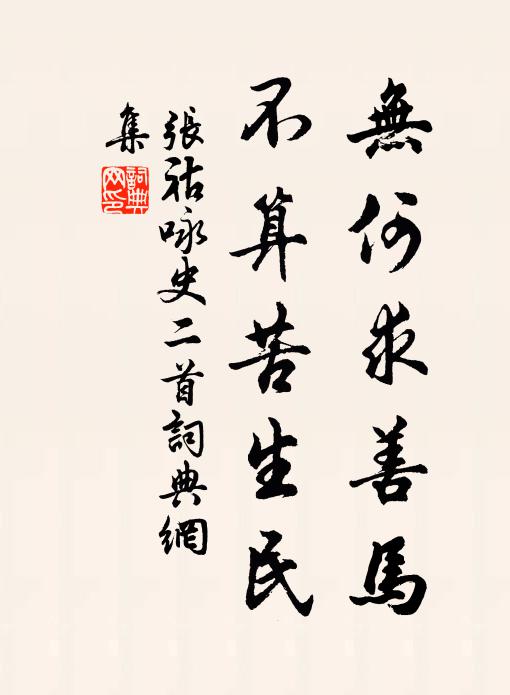 無何求善馬
不算苦生民
張祜咏史二首詞典網
集
詞典
网印